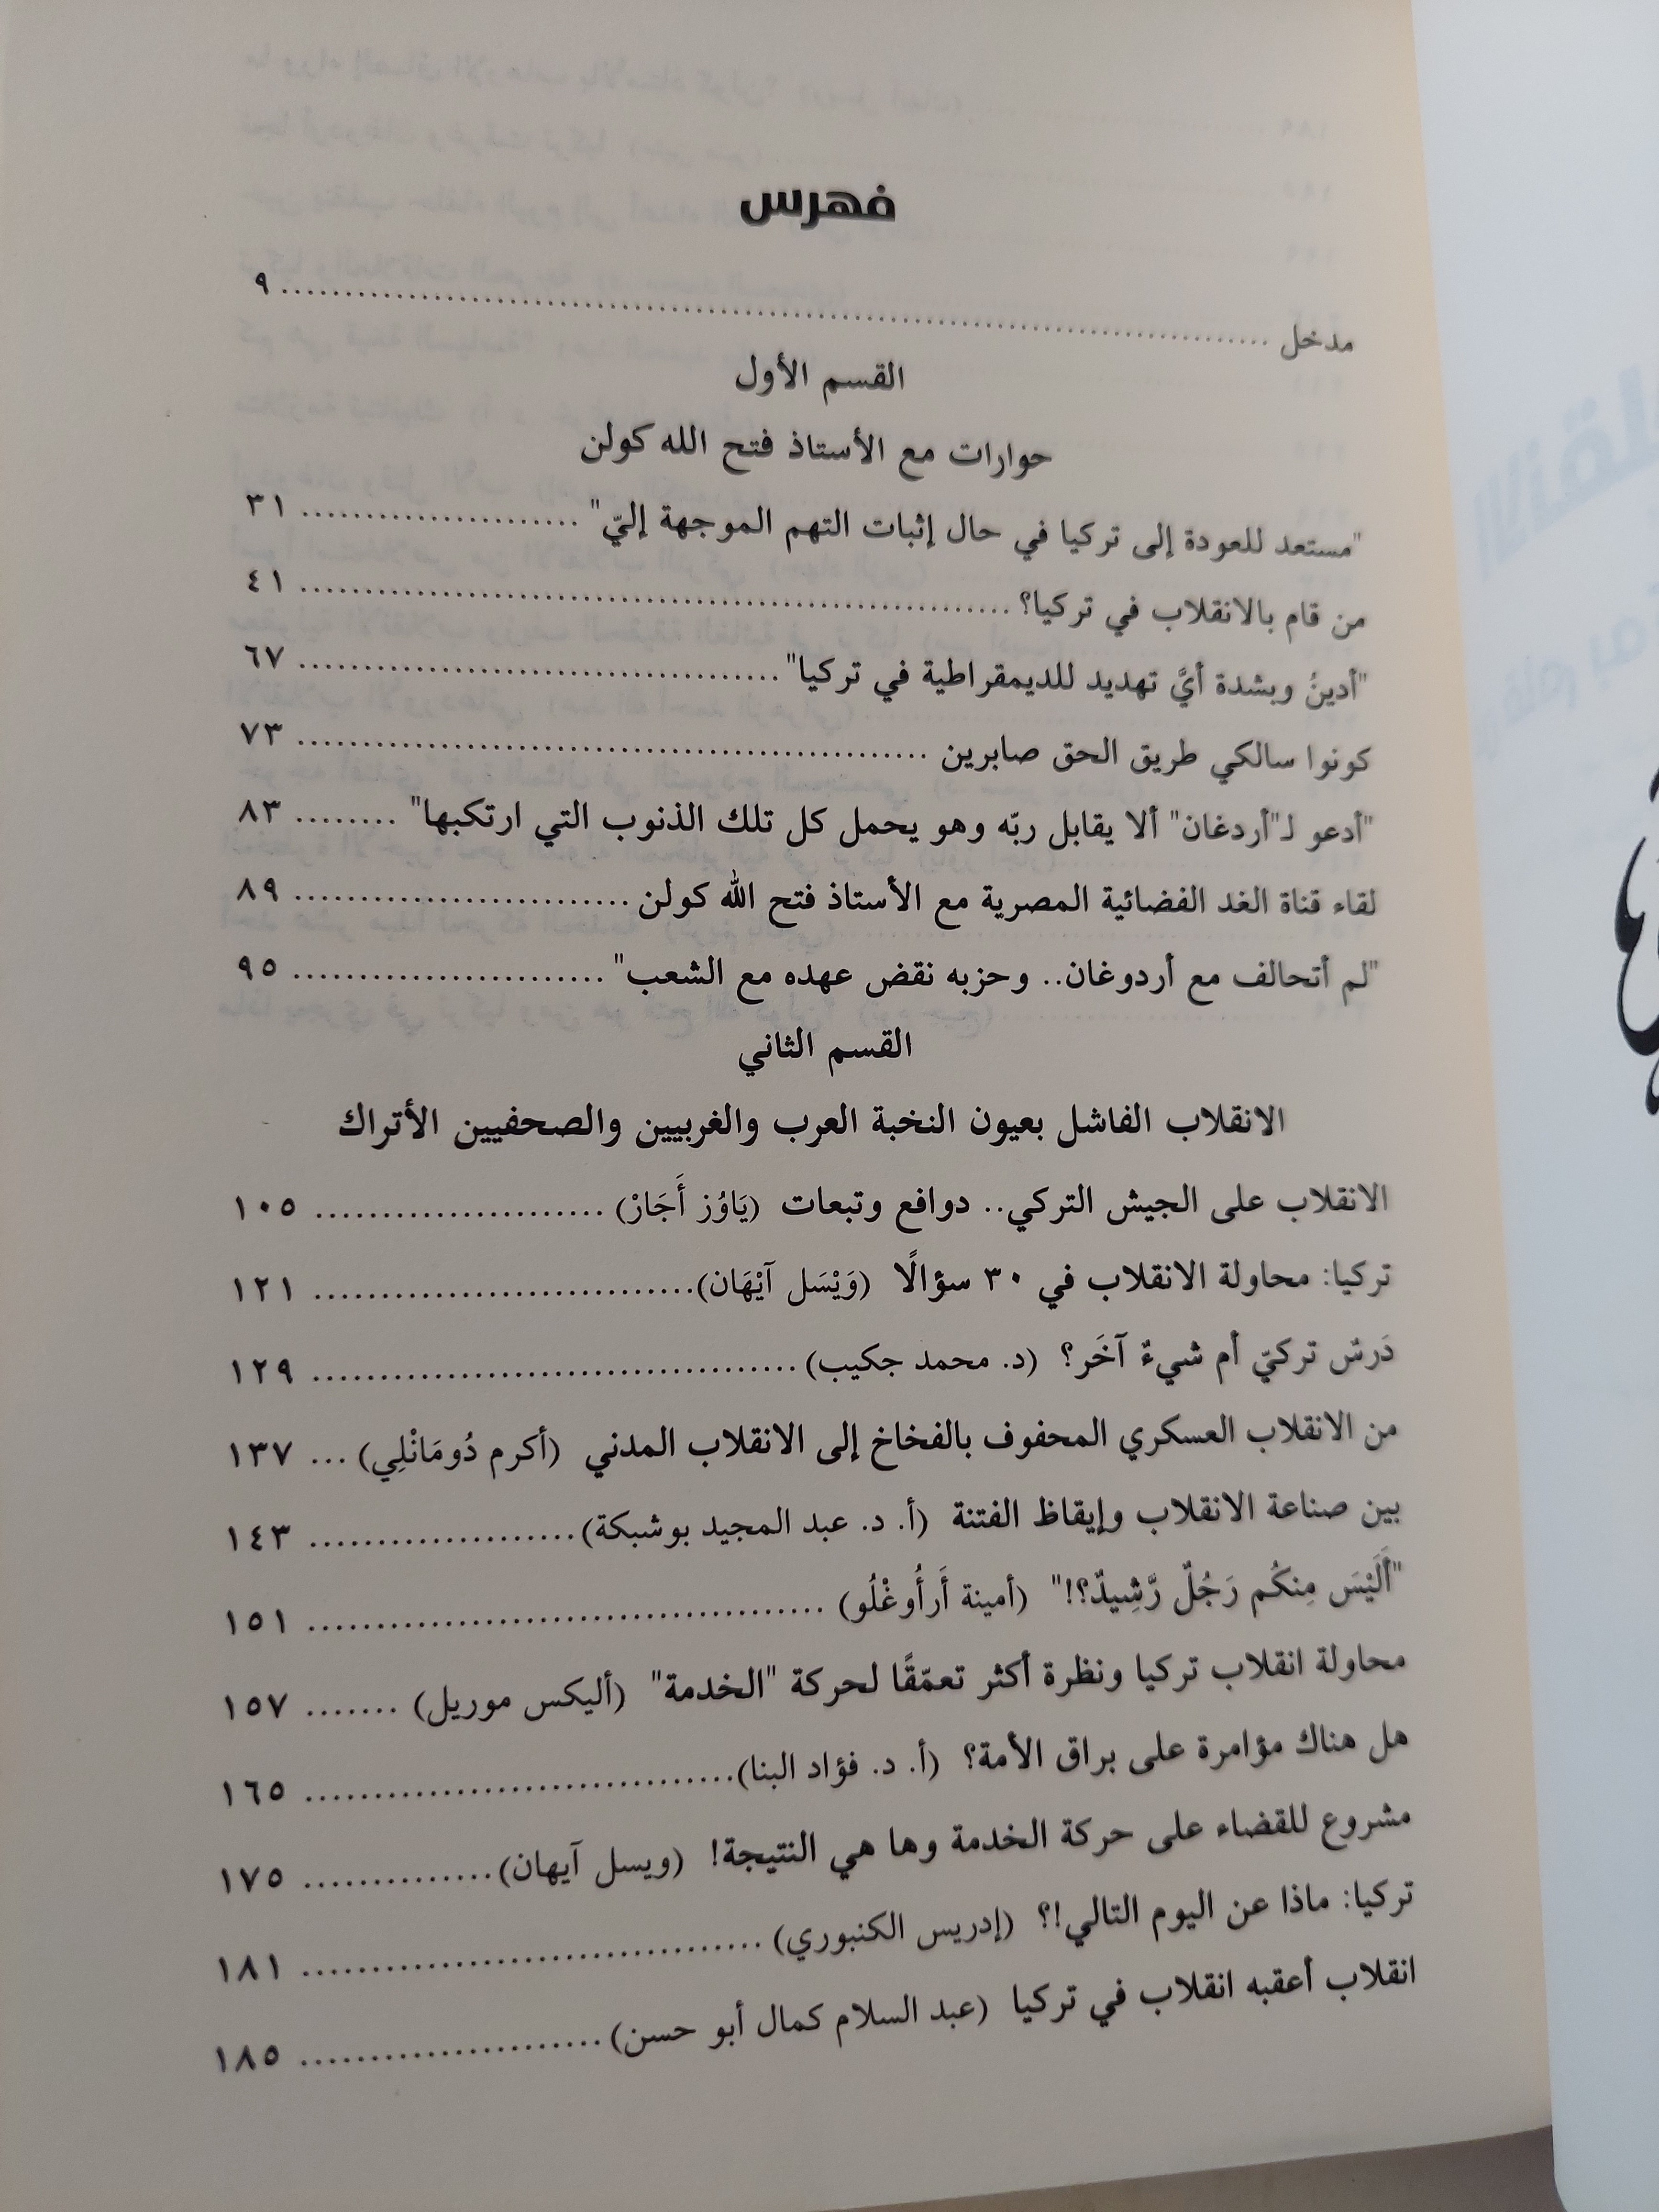 فهرس
مدخل ........ ٩
القسم الأول
حوارات مع الأستاذ فتح الله كولن
"مستعد للعودة إلى تركيا في حال إثبات التهم الموجهة إليّ" ........ ٣١
من قام بالانقلاب في تركيا؟ ........ ٤١
"أدينُ وبشدة أيَّ تهديد للديمقراطية في تركيا" ........ ٦٧
كونوا سالكي طريق الحق صابرين ........ ٧٣
"أدعو لـ"أردغان" ألا يقابل ربّه وهو يحمل كل تلك الذنوب التي ارتكبها" ........ ٨٣
لقاء قناة الغد الفضائية المصرية مع الأستاذ فتح الله كولن ........ ٨٩
"لم أتحالف مع أردوغان.. وحزبه نقض عهده مع الشعب" ........ ٩٥
القسم الثاني
الانقلاب الفاشل بعيون النخبة العرب والغربيين والصحفيين الأتراك
الانقلاب على الجيش التركي.. دوافع وتبعات (يَاوُز أَجَارْ) ........ ١٠٥
تركيا: محاولة الانقلاب في ٣٠ سؤالًا (وَيْسَل آيْهَان) ........ ١٢١
دَرسٌ تركيّ أم شيءٌ آخَر؟ (د. محمد جكيب) ........ ١٢٩
من الانقلاب العسكري المحفوف بالفخاخ إلى الانقلاب المدني (أكرم دُومَانْلِي) ... ١٣٧
بين صناعة الانقلاب وإيقاظ الفتنة (أ. د. عبد المجيد بوشبكة) ........ ١٤٣
"أَلَيْسَ مِنكُم رَجُلٌ رَّشِيدٌ؟!" (أمينة أَرأُوغْلُو) ........ ١٥١
محاولة انقلاب تركيا ونظرة أكثر تعمّقًا لحركة "الخدمة" (أليكس موريل) ....... ١٥٧
هل هناك مؤامرة على براق الأمة؟ (أ. د. فؤاد البنا) ........ ١٦٥
مشروع للقضاء على حركة الخدمة وها هي النتيجة! (ويسل آيهان) ........ ١٧٥
تركيا: ماذا عن اليوم التالي!؟ (إدريس الكنبوري) ........ ١٨١
انقلاب أعقبه انقلاب في تركيا (عبد السلام كمال أبو حسن) ........ ١٨٥